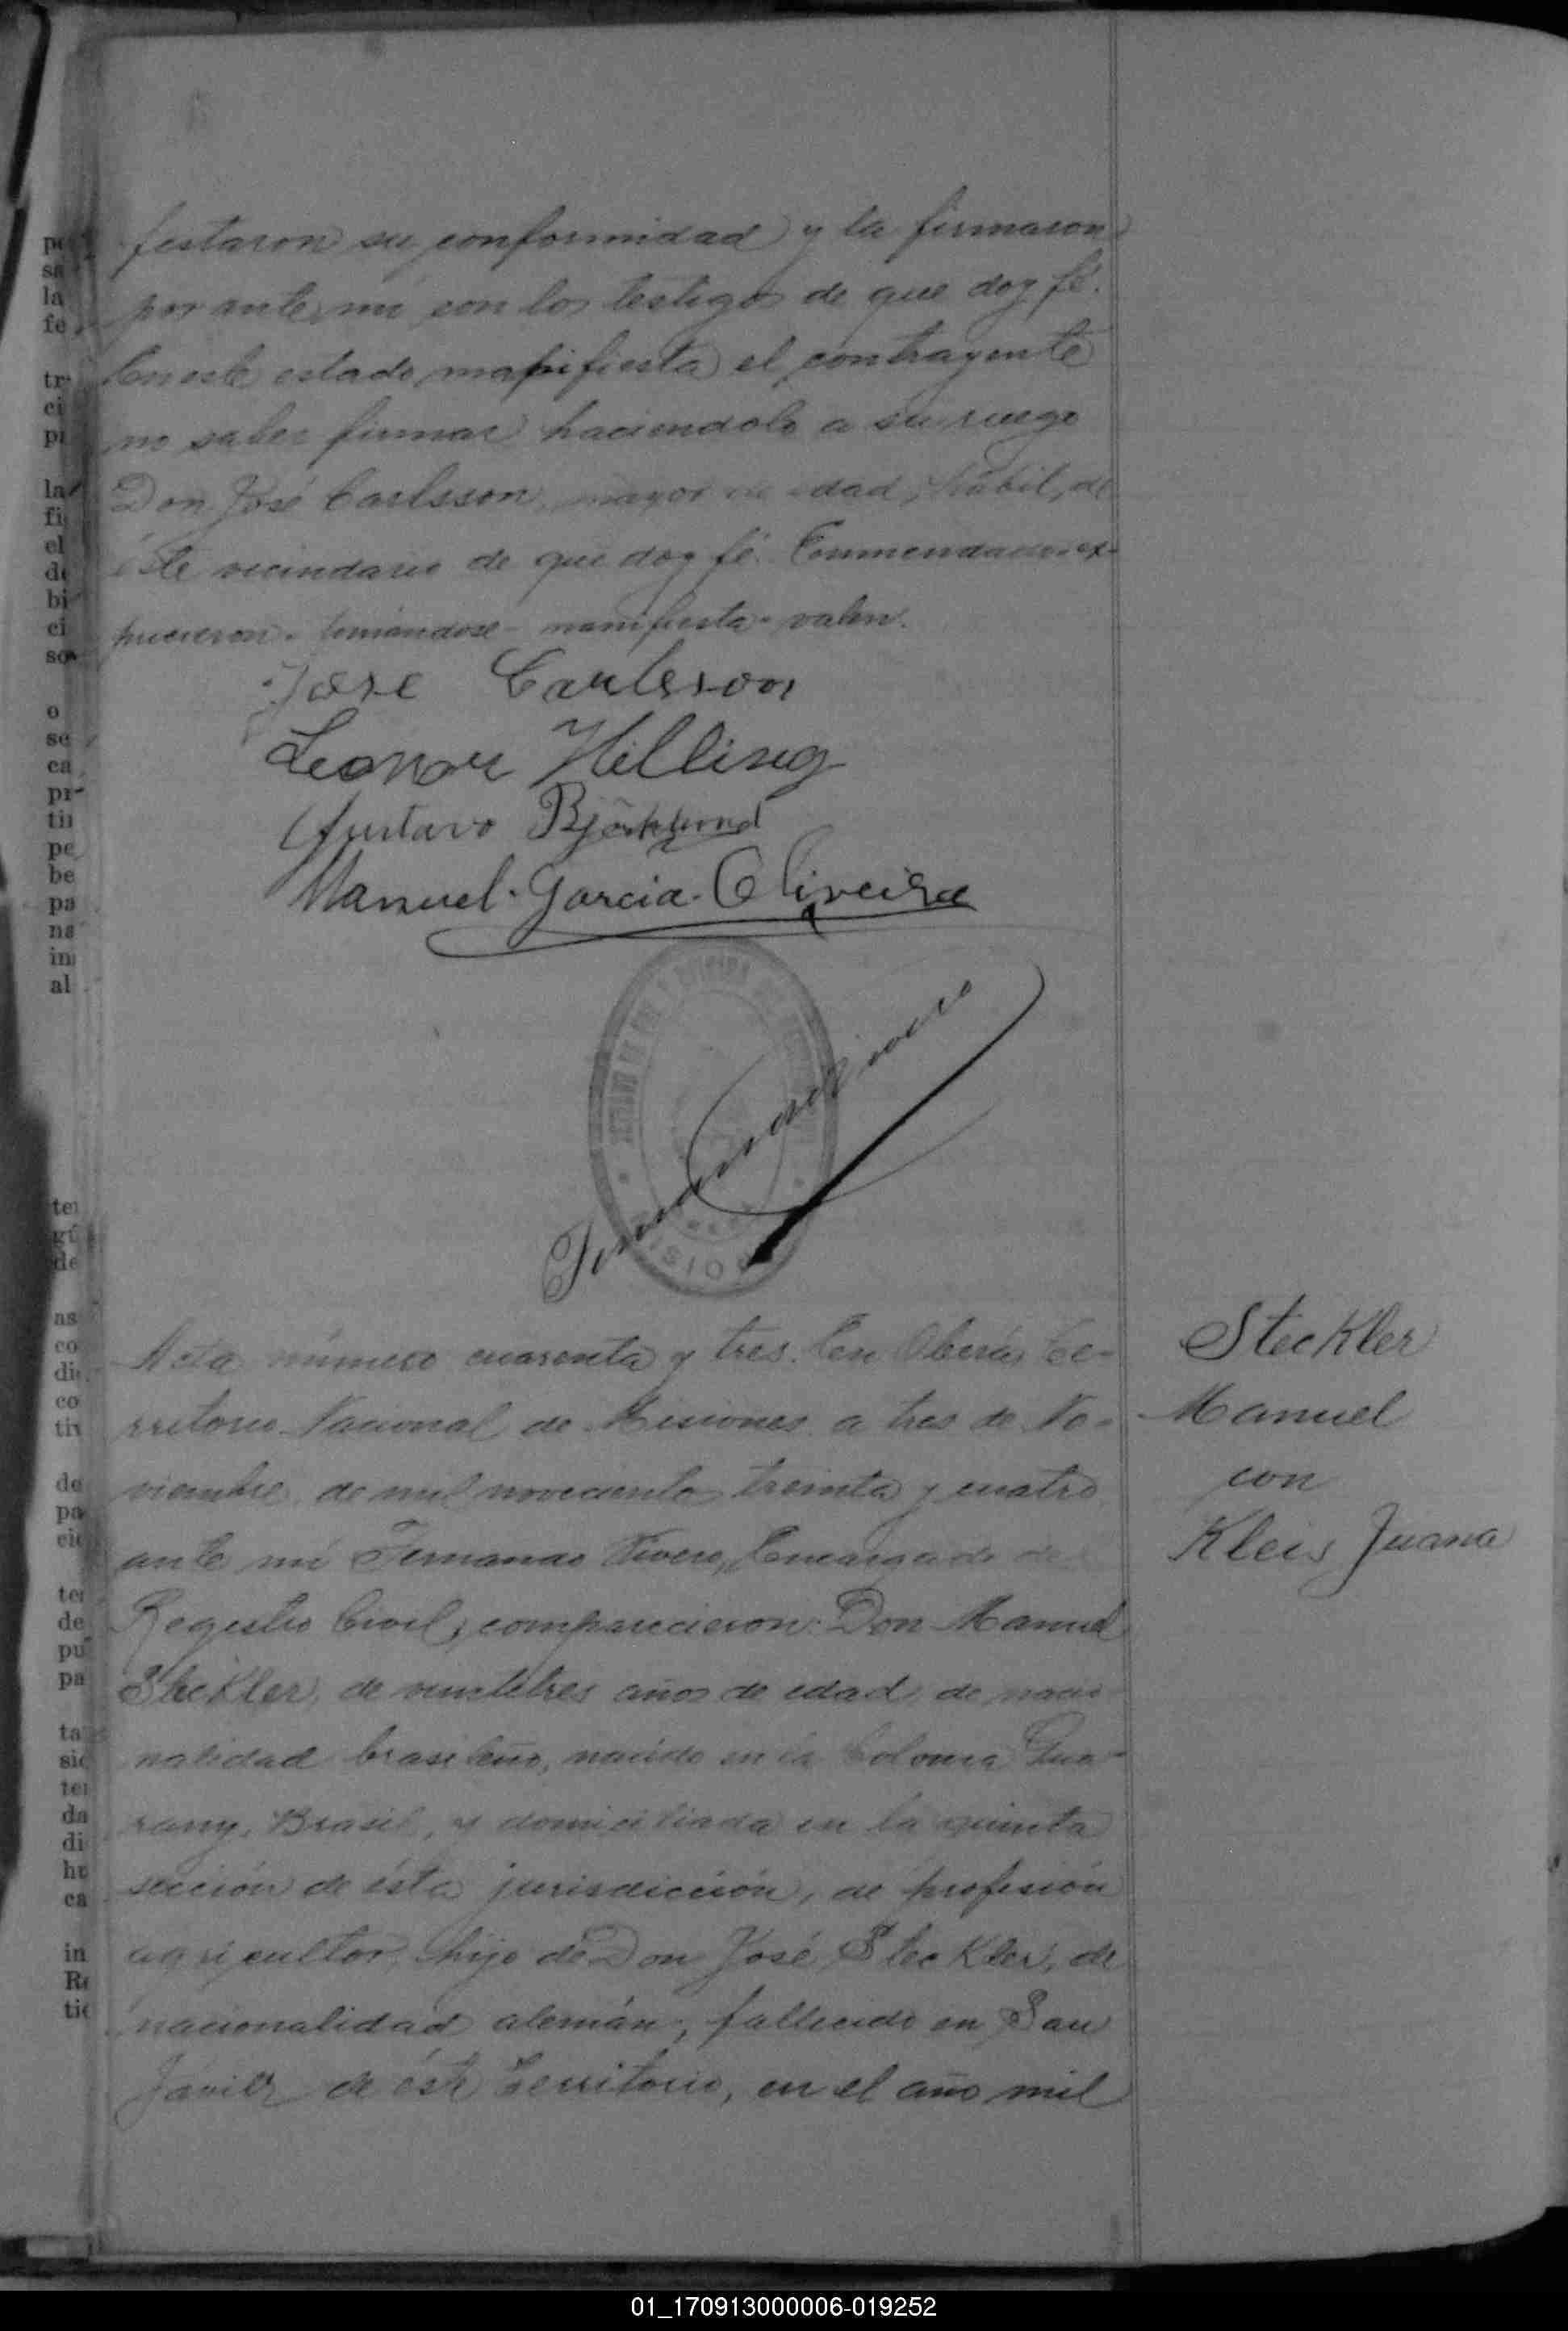 festaron su conformidad y la firmaron
por ante mí con los testigos de que doy fé.
En este estado manifiesta el contrayente
no saber firmar haciendolo a su ruego
Don José Carlsson, mayor de edad, hábil, de
éste vecindario de que doy fé. Enmendado: ex-
pusieron - manifiesta - valen.
Jose Carlsson
Leonor Hilling
Gustavo Björklund
Manuel Garcia Oliveira
Fernando Vivero
Acta número cuarenta y tres. En Oberá, Te-
rritorio Nacional de Misiones a tres de No-
viembre de mil novecientos treinta y cuatro
ante mí Fernando Vivero, Encargado de
Registro Civil, comparecieron: Don Manuel
Steckler, de veintitres años de edad, de nacio
nalidad brasileño, nacido en la Colonia Gua-
rany, Brasil, y domiciliado en la quinta
sección de ésta jurisdicción, de profesión
agricultor, hijo de Don José Steckler, de
nacionalidad alemán, fallecido en San
Javier de éste Territorio, en el año mil
Steckler
Manuel
con
Kleis Juana
pe
sa
la
fe
tr
ci
pi
la
fi
el
de
bi
ci
so
o
se
ca
pr
tin
pe
be
pa
na
in
al
ter
gú
de
as
co
di
co
tiv
de
pa
cie
ter
de
pu
pa
ta
sic
ter
da
di
hu
ca
in
Re
tic
01_170913000006-019252